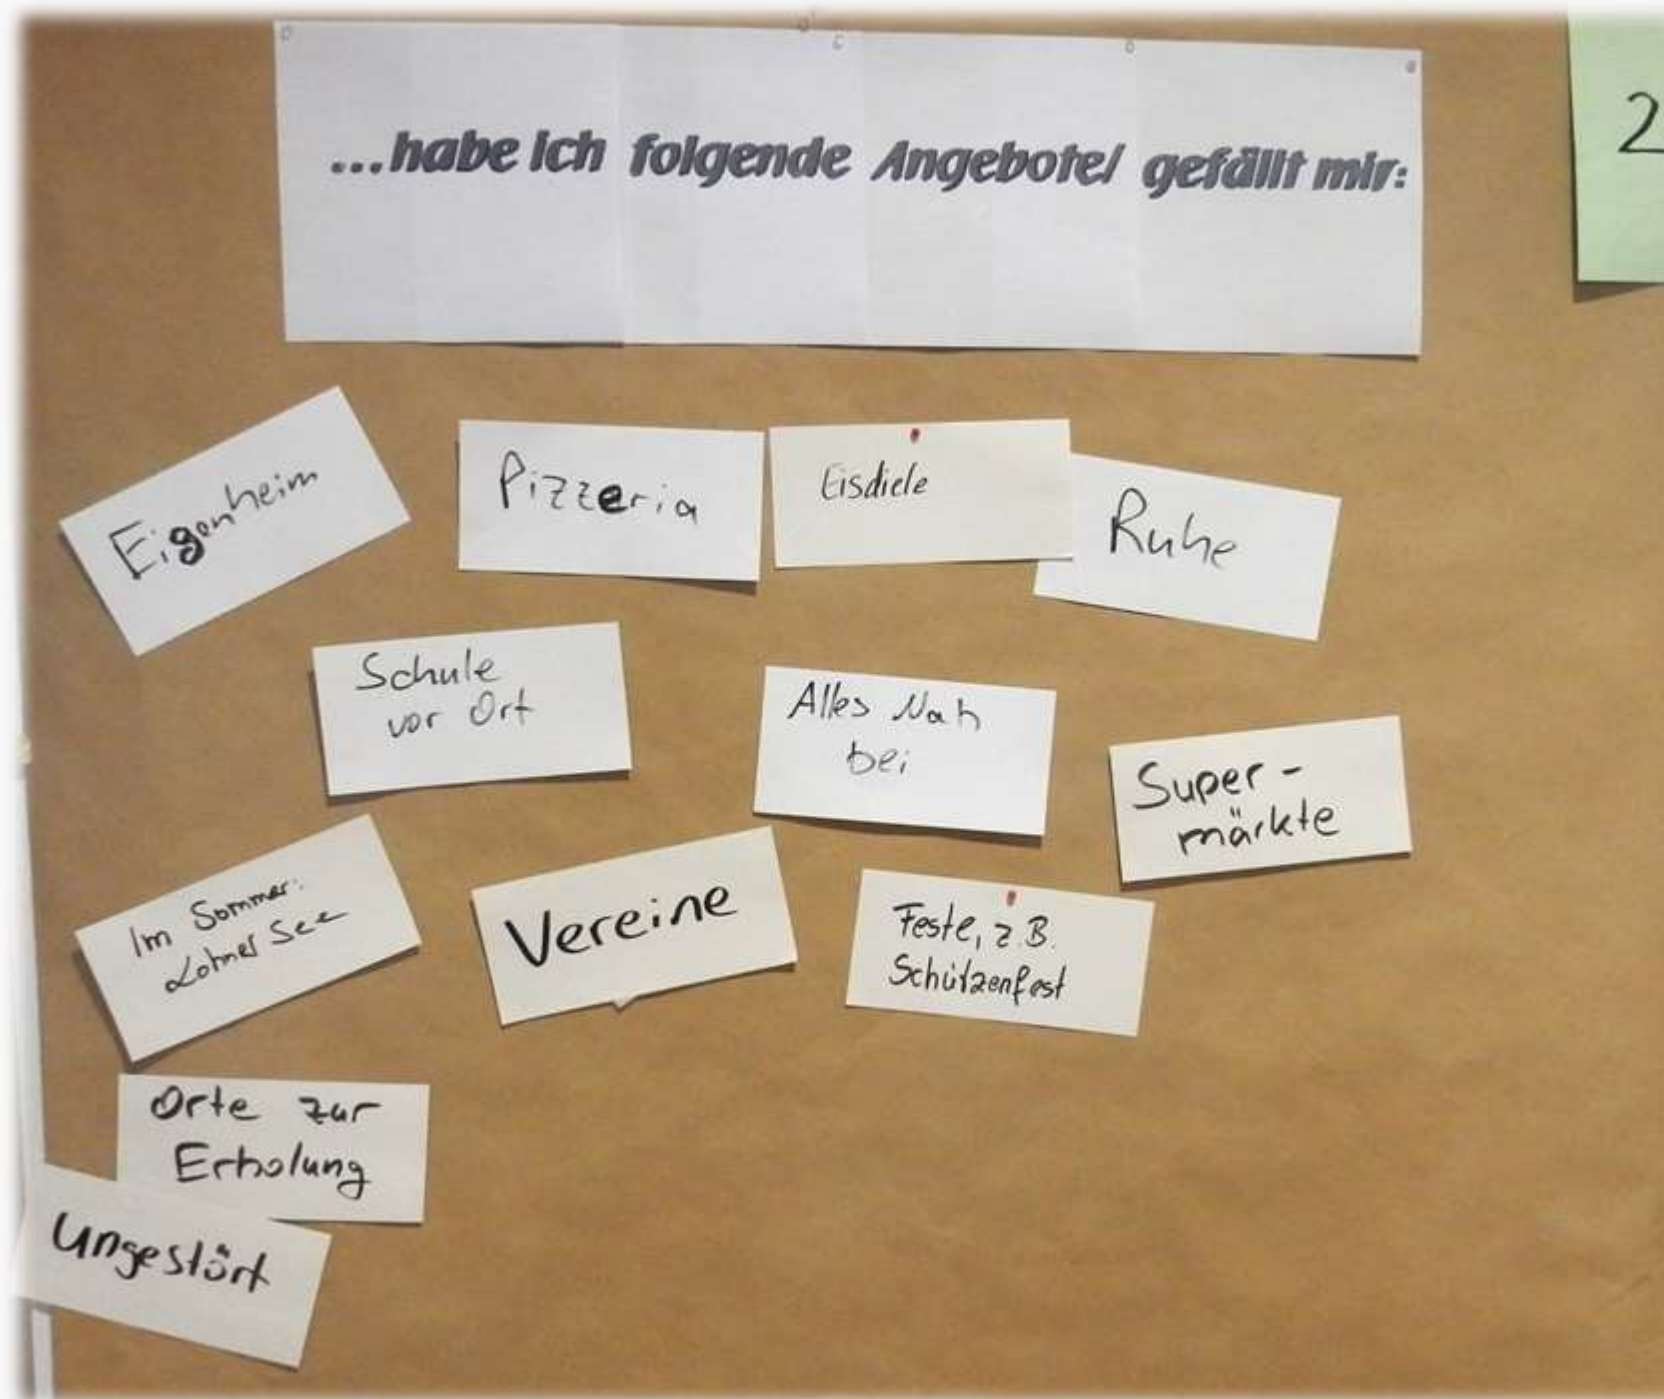 ...habe ich folgende Angebote/ gefällt mir:
2
Eigenheim
Pizzeria
Eisdiele
Ruhe
Schule
vor Ort
Alles Nah
bei
Super-
märkte
Im Sommer:
Lohner See
Vereine
Feste, z.B.
Schützenfest
Orte zur
Erholung
ungestört